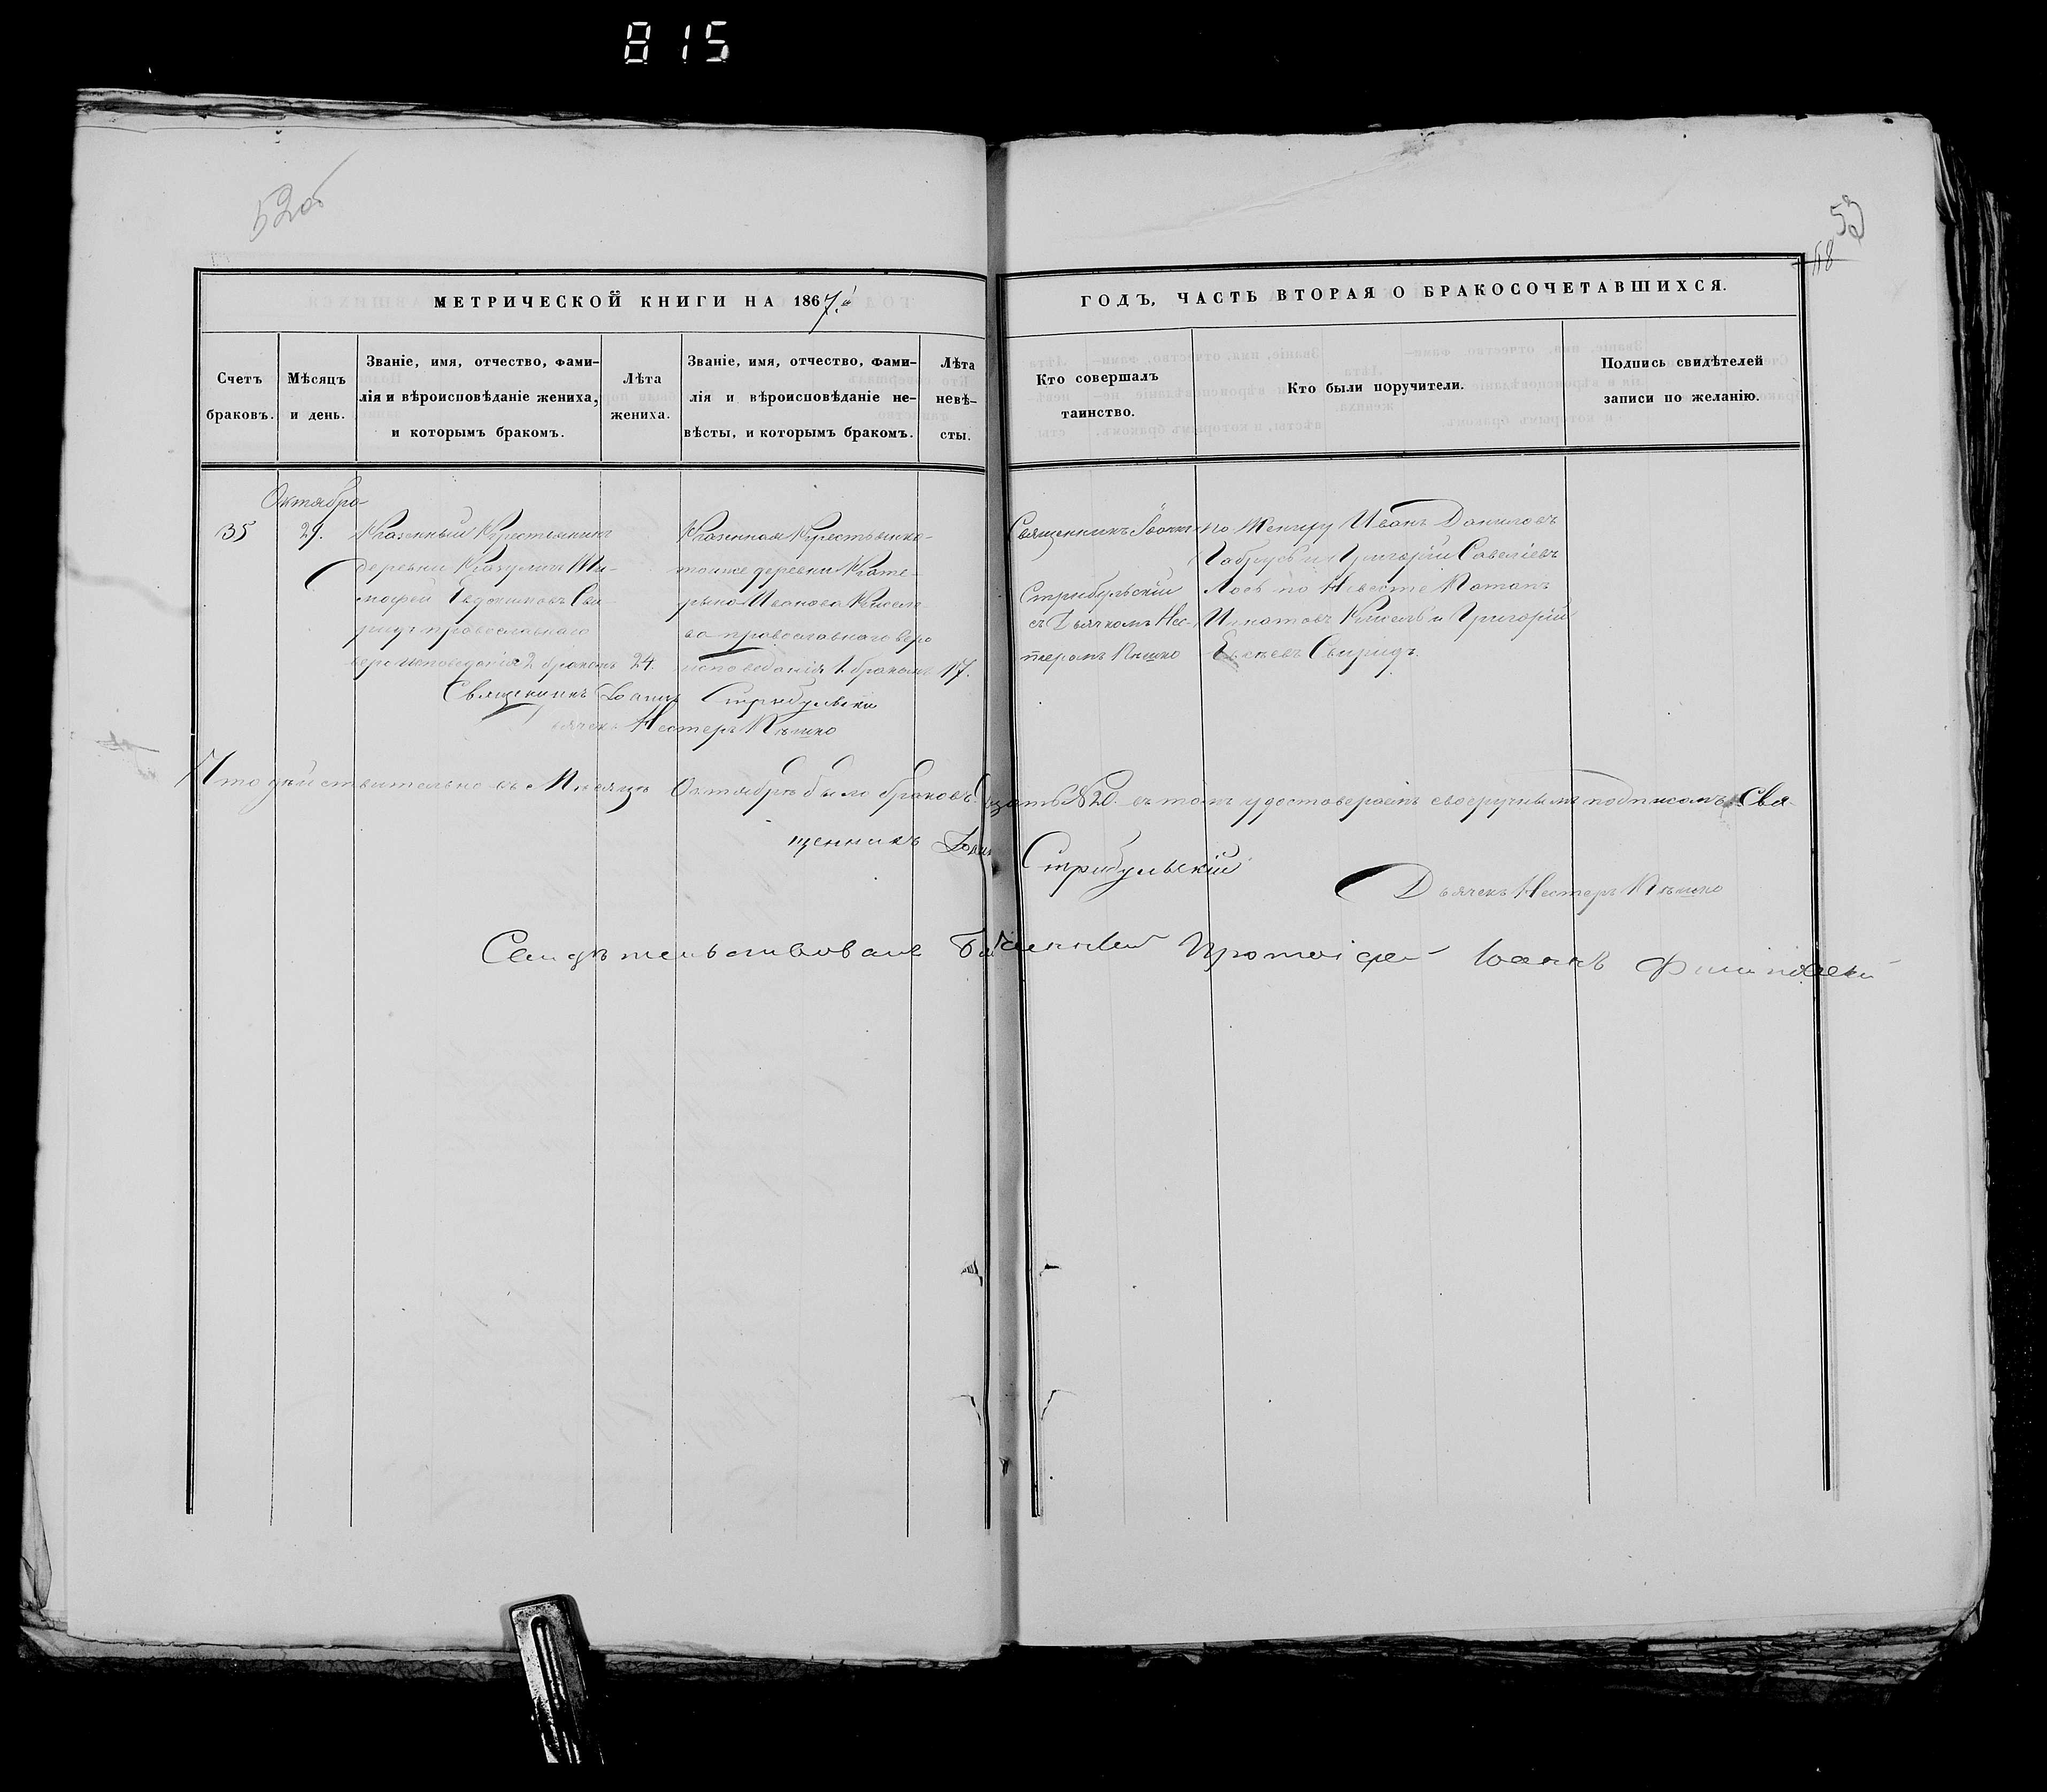 815
52об
53
МЕТРИЧЕСКОЙ КНИГИ НА 1867
ГОДЪ, ЧАСТЬ ВТОРАЯ О БРАКОСОЧЕТАВШИХСЯ.
Счетъ
браковъ.
Мѣсяцъ
и день.
Званіе, имя, отчество, фами-
лія и вѣроисповѣданіе жениха,
и которымъ бракомъ.
Лѣта
жениха.
Званіе, имя, отчество, фами-
лія и вѣроисповѣданіе не-
вѣсты, и которымъ бракомъ.
Лѣта
невѣ-
сты.
Кто совершалъ
таинство.
Кто были поручители.
Подпись свидѣтелей
записи по желанію.
Октября
35
29.
Казенный Крестьянинъ
деревни Ти-
мофей Евдокимовъ Сви-
ридъ православнаго
вероисповеданія 2 бракомъ
24.
Казенная Крестьянка
тойже деревни Кате-
рына Иванова Кисел-
ва православнаго веро
исповеданія 1. бракомъ
17.
Священникъ Іоаннъ
Стрибульскій
съ Дьячкомъ Нес-
теромъ
по Жениху Иванъ Даниловъ
и Григорій Савеліевъ
Лось по Невесте Потапъ
Игнатовъ Кисель и Григорій
Свиридъ.
Священникъ Іоаннъ Стрибульскій
Дьячекъ Нестеръ
Что действительно въ Месяце Октябре было браковъ № 20. въ томъ удостовераемъ своеручнымъ подписомъ Свя-
щенникъ Іоаннъ Стрибульскій
Дьячекъ Нестеръ
Свидѣтельствовалъ Протоіерей Іоаннъ